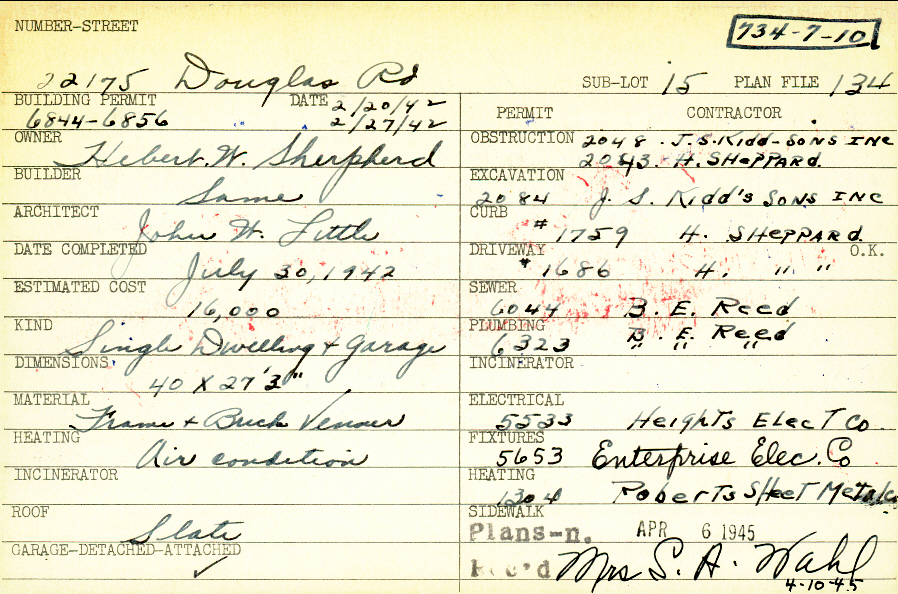 734-7-10
NUMBER-STREET
22175 Douglas Rd
SUB-LOT 15 PLAN FILE 134
BUILDING PERMIT DATE 2/20/42
6844-6856 2/27/42
OWNER
Hebert. W. Sherpherd
BUILDER
Same
ARCHITECT
John W. Little
DATE COMPLETED
July 30, 1942
ESTIMATED COST
16,000
KIND
Single Dwelling + Garage
DIMENSIONS
40 X 27'3"
MATERIAL
Frame + Brick Veneer
HEATING
Air condition
INCINERATOR
ROOF
Slate
GARAGE-DETACHED-ATTACHED
✓
PERMIT CONTRACTOR
OBSTRUCTION 2048 . J. S. Kidd-Sons INC
2043. H. SHePPARD.
EXCAVATION
2084 J. S. Kidd's Sons INC
CURB
# 1759 H. SHEPPARD.
DRIVEWAY O.K.
# 1686 H. " "
SEWER
6044 B. E. Reed
PLUMBING
6323 B. E. Reed
" " "
INCINERATOR
ELECTRICAL
5533 Heights Elect Co.
FIXTURES
5653 Enterprise Elec. Co
HEATING
1304 Roberts Sheet Metal Co
SIDEWALK
Plans-n. APR 6 1945
Rec'd Mrs S. A. Wahl
4-10-45